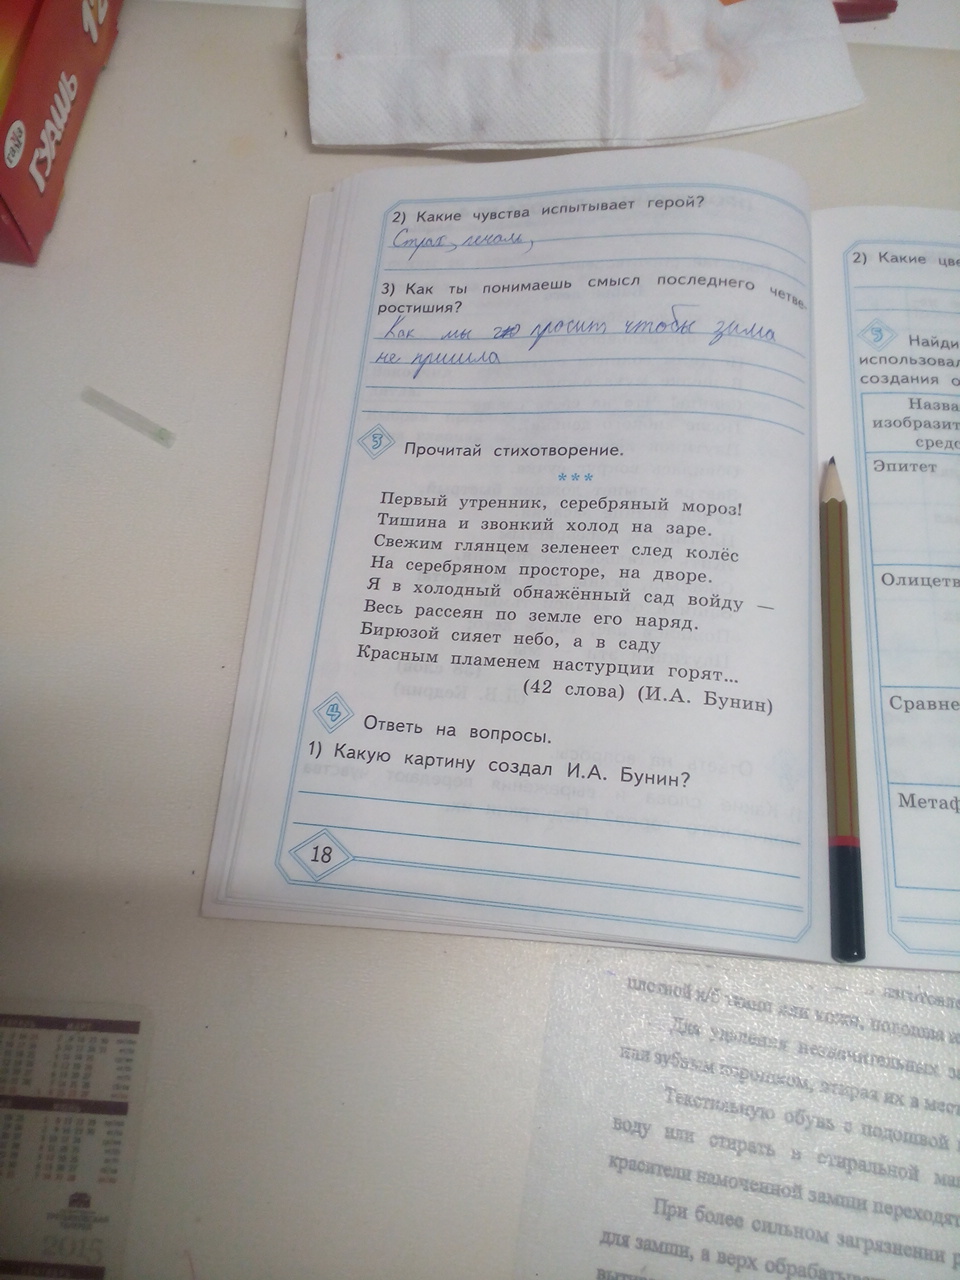 12
ГУАШЬ
гамма
2) Какие чувства испытывает герой?
Страх, печаль,
3) Как ты понимаешь смысл последнего четве-
ростишия?
Как мы просит чтобы зима
не пришла
3 Прочитай стихотворение.
***
Первый утренник, серебряный мороз!
Тишина и звонкий холод на заре.
Свежим глянцем зеленеет след колёс
На серебряном просторе, на дворе.
Я в холодный обнажённый сад войду —
Весь рассеян по земле его наряд.
Бирюзой сияет небо, а в саду
Красным пламенем настурции горят...
(42 слова) (И.А. Бунин)
4 Ответь на вопросы.
1) Какую картину создал И.А. Бунин?
18
2) Какие цве
3 Найди
использовал
создания о
Назва
изобразит
средс
Эпитет
Олицетв
Сравне
Метаф
плотной х/б ткани или кожи, подошва
Для удаления незначительных за
или зубным порошком, втирая их в мест
Текстильную обувь с подошвой
воду или стирать в стиральной ма
красители намоченной замши переходят
При более сильном загрязнении р
для замши, а верх обрабатывае
МАРТ
2015